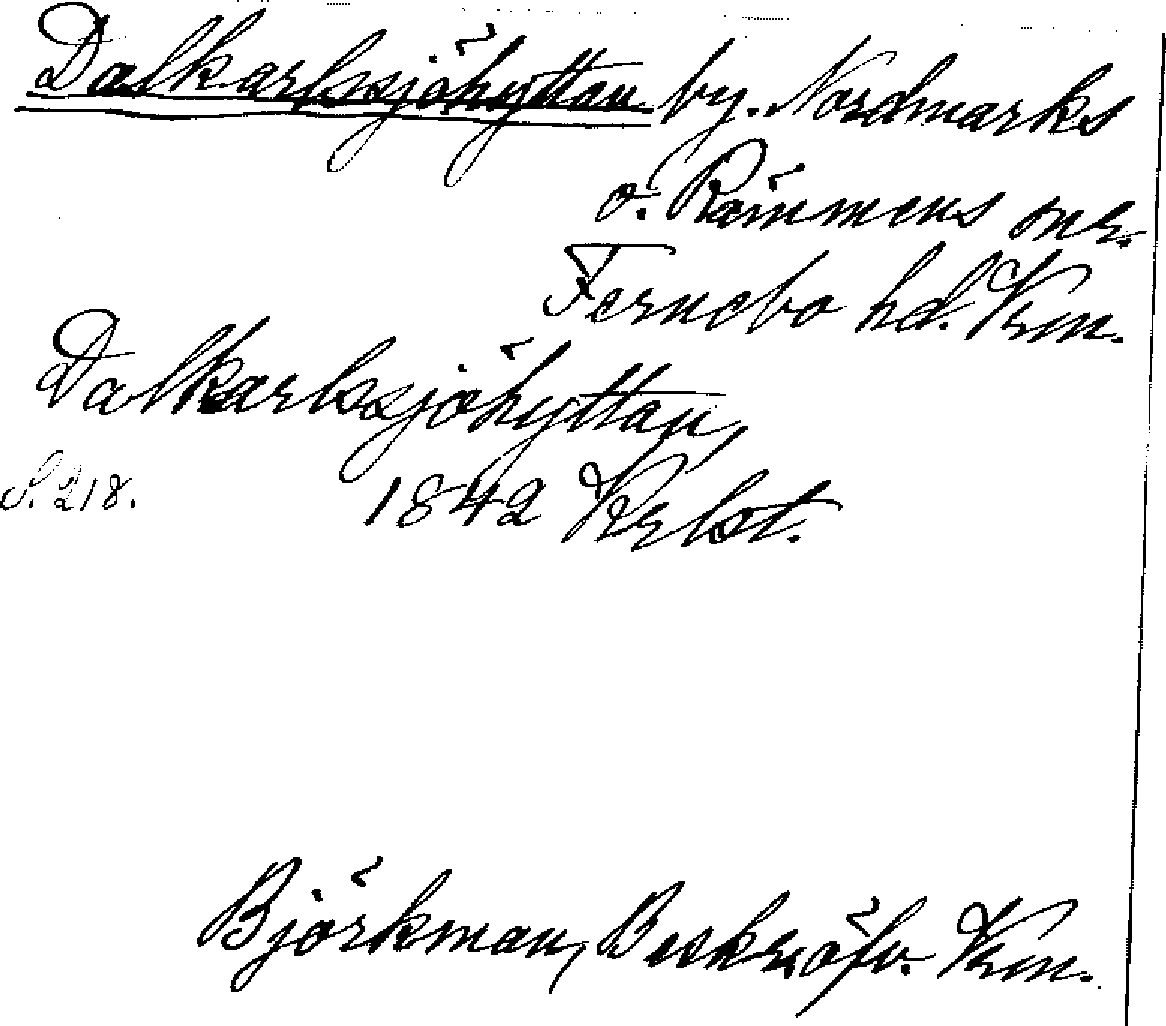 Dalkarlssjöhyttan by. Nordmarks
o. Rämmens snr.
Fernebo hd. Vrm.
Dalkarlssjöhyttan,
S. 218. 1842
Björkman, Beskr. öfv. Vrm.